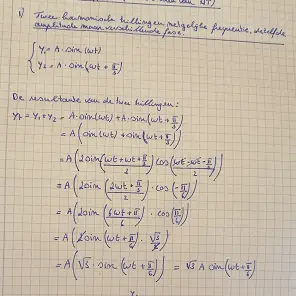 1) Twee harmonische trillingen met gelijke frequentie, dezelfde
amplitude maar verschillende fase:
y₁ = A · sin (ωt)
y₂ = A · sin (ωt + π/3)
De resultante van de twee trillingen:
= y₁ + y₂ = A · sin(ωt) + A · sin(ωt + π/3)
= A (sin(ωt) + sin(ωt + π/3))
= A (2 sin((ωt + ωt + π/3)/2) cos((ωt - ωt - π/3)/2))
= A (2 sin((2ωt + π/3)/2) · cos(-π/6))
= A (2 sin((6ωt + π)/6) · cos(π/6))
= A (2 sin(ωt + π/6) · √3/2)
= A (√3 · sin(ωt + π/6)) = √3 A sin(ωt + π/6)